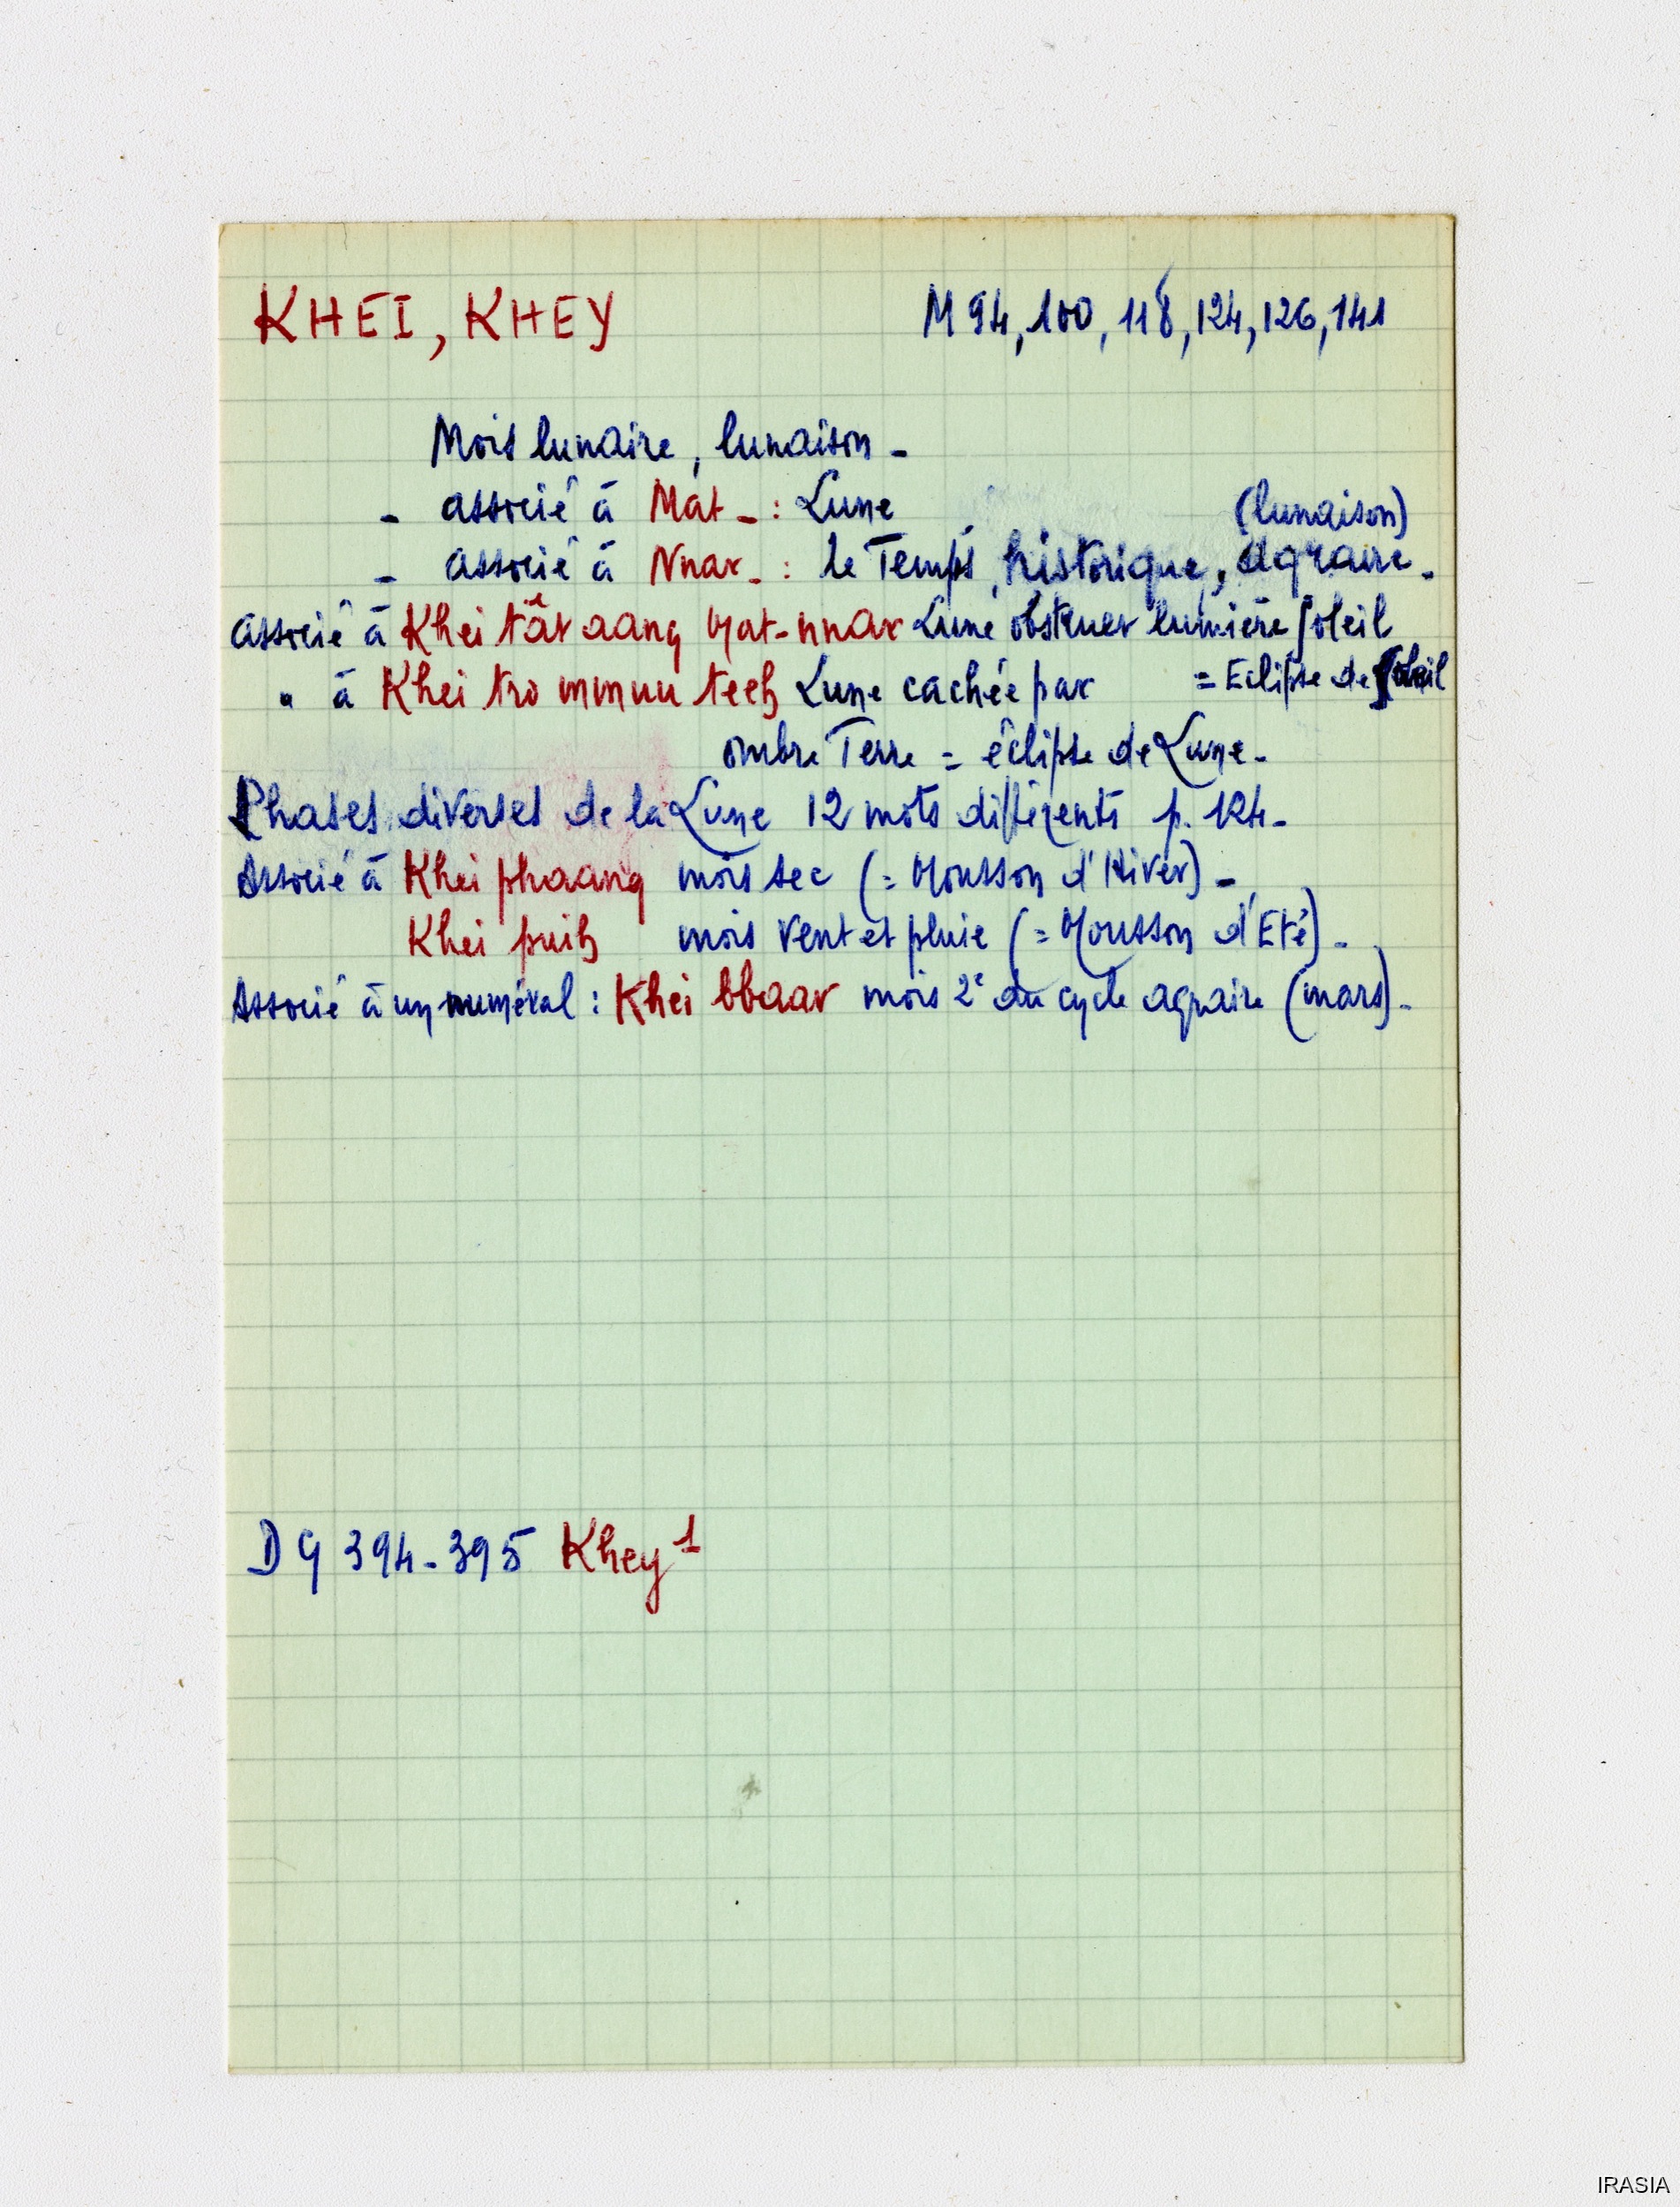 KHEI, KHEY M 94, 100, 118, 124, 126, 141
Mois lunaire, lunaison -
- associé à Mat - : Lune
(lunaison)
- associé à Nnar - : le Temps historique, agraire.
associé à Khei tât aang Mat-nnar Lune obstruer lumière Soleil
" à Khei tro mmuu teeh Lune cachée par = Eclipse de Soleil
ombre Terre = éclipse de Lune -
Phases diverses de la Lune 12 mots différents p. 124 -
Associé à Khei phaang mois sec (= Mousson d'Hiver) -
Khei puih mois vent et pluie (= Mousson d'Eté) -
Associé à un numéral : Khei bbaar mois 2e du cycle agraire (mars) -
DG 394-395 Khey 1
IRASIA